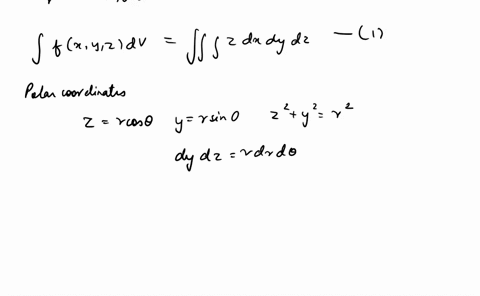 ∫ f(x,y,z) dV = ∭ z dx dy dz — (1)
Polar coordinates
z = r cosθ y = r sinθ z² + y² = r²
dy dz = r dr dθ